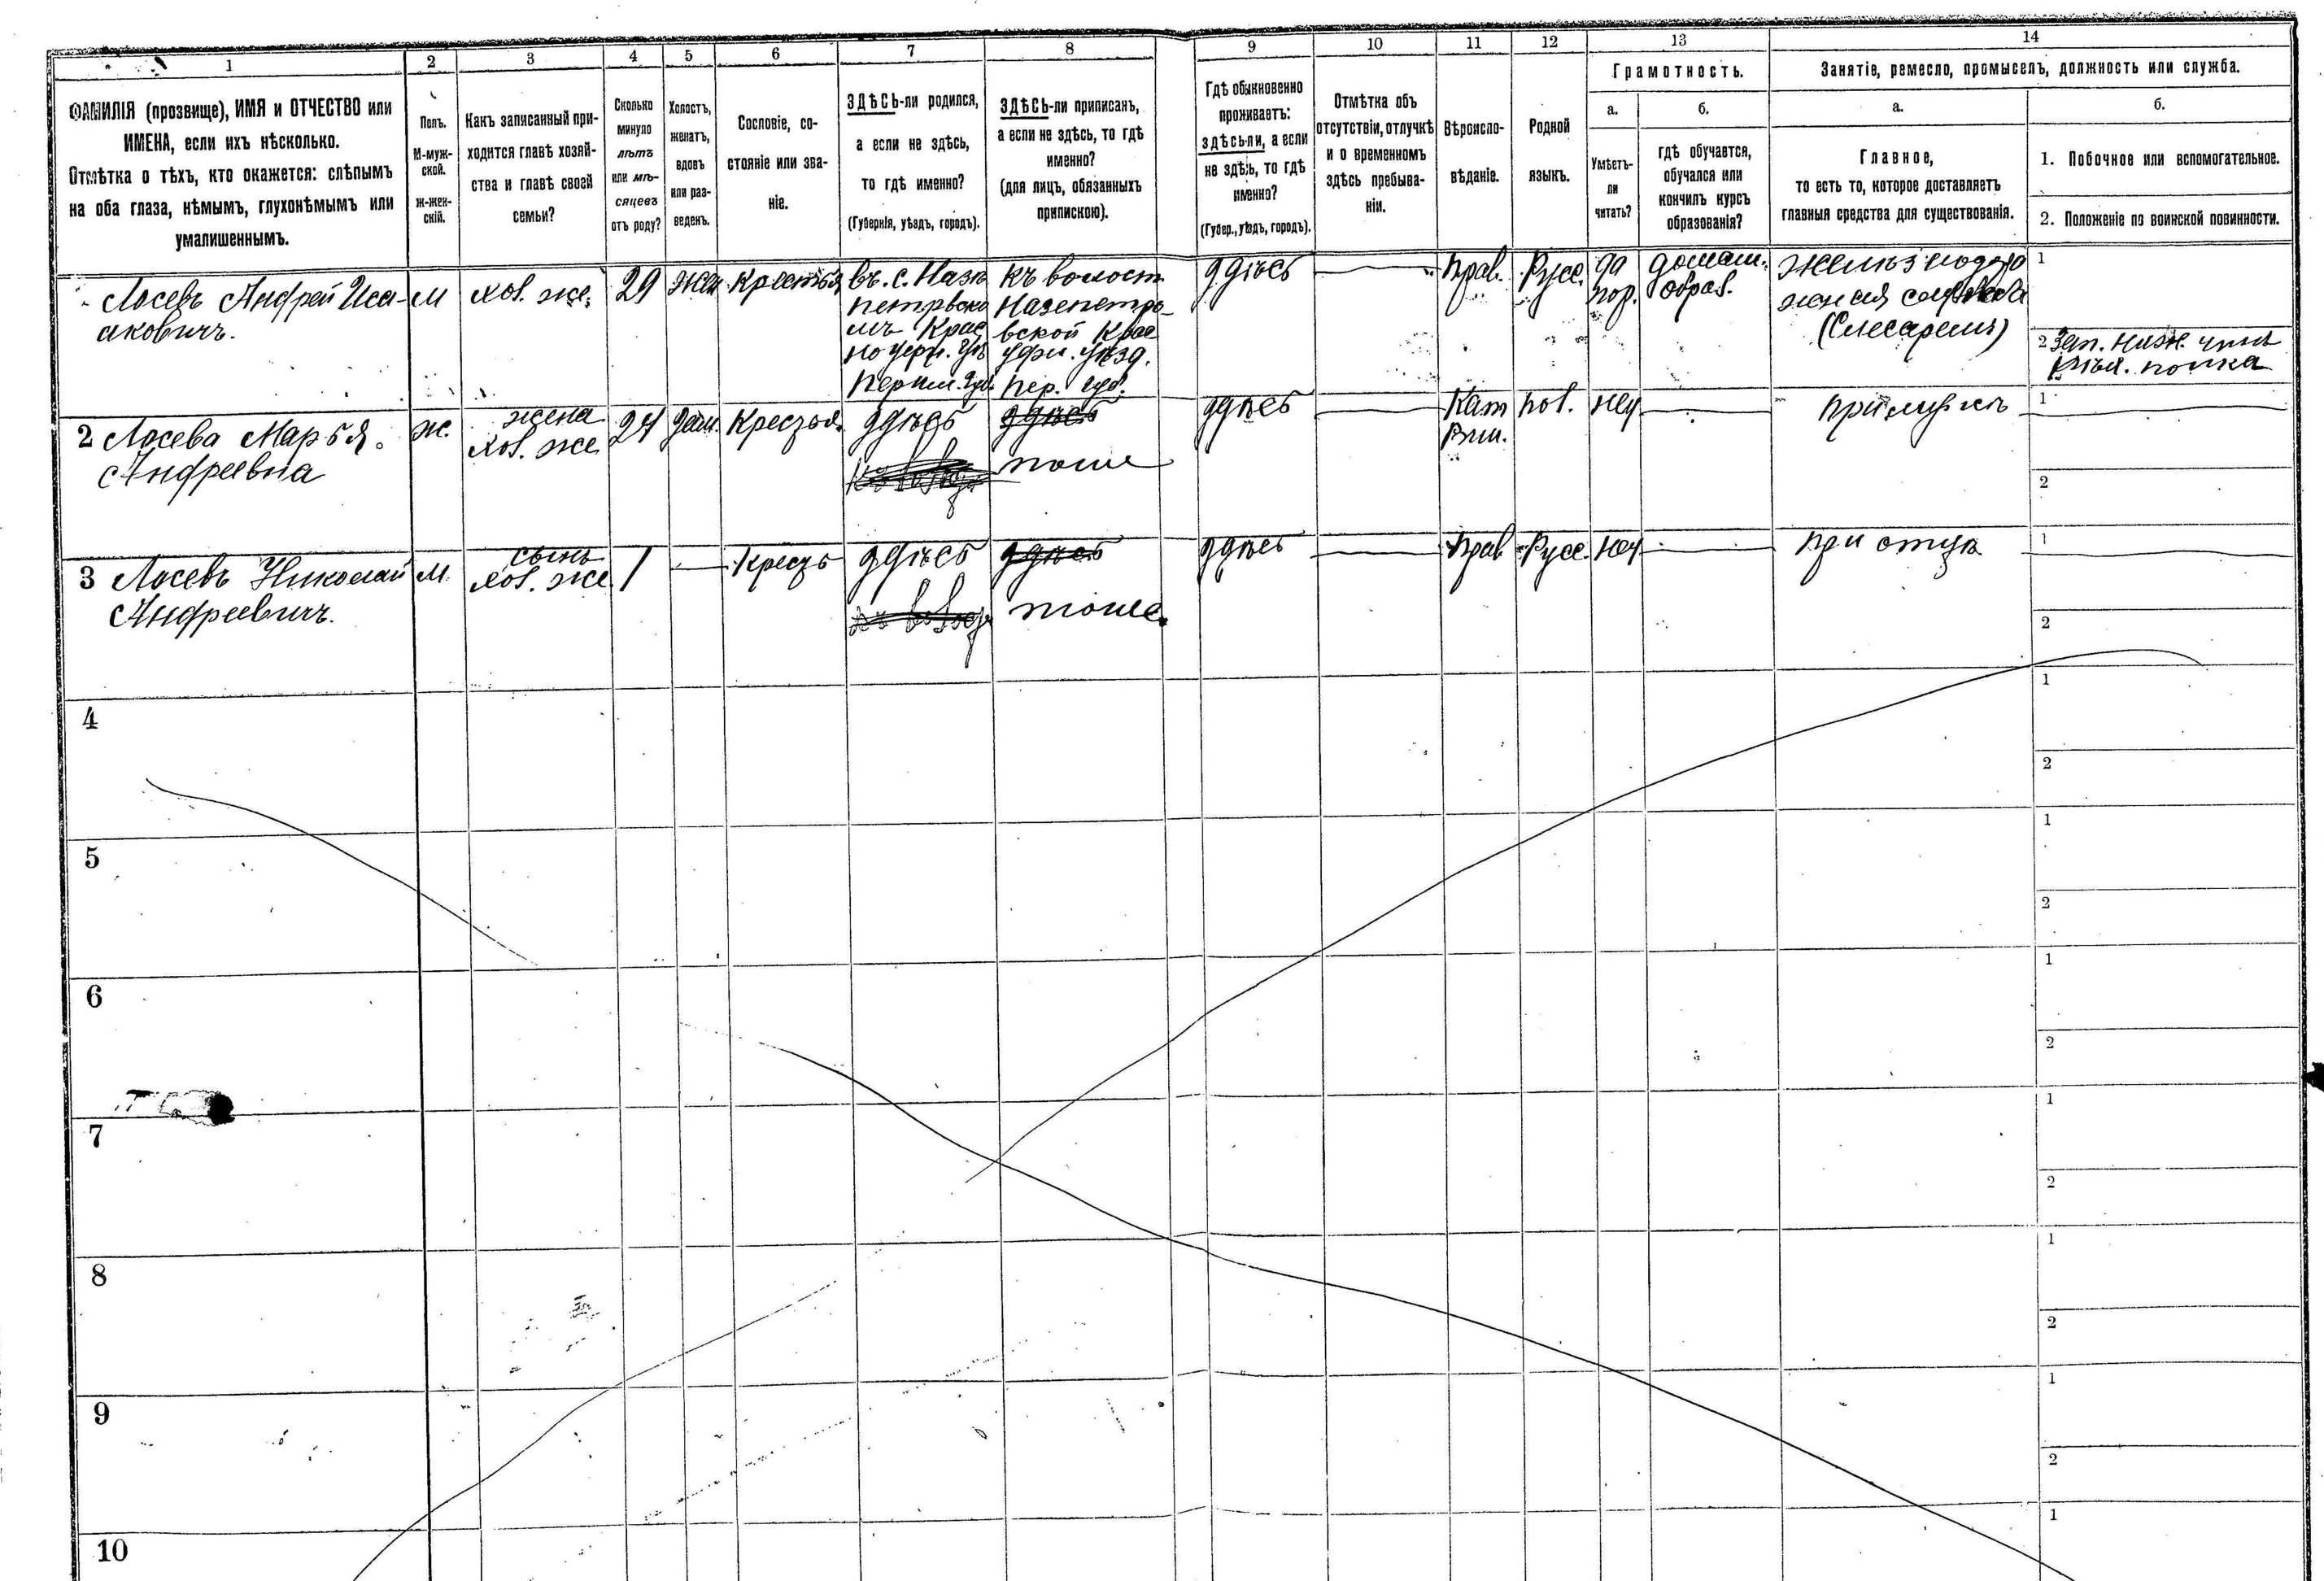 1 2 3 4 5 6 7 8 9 10 11 12 13 14
ФАМИЛІЯ (прозвище), ИМЯ и ОТЧЕСТВО или
ИМЕНА, если ихъ нѣсколько.
Отмѣтка о тѣхъ, кто окажется: слѣпымъ
на оба глаза, нѣмымъ, глухонѣмымъ или
умалишеннымъ.
Полъ.
М-муж-
ской.
Ж-жен-
скій.
Какъ записанный при-
ходится главѣ хозяй-
ства и главѣ своей
семьи?
Сколько
минуло
лѣтъ
или мѣ-
сяцевъ
отъ роду?
Холостъ,
женатъ,
вдовъ
или раз-
веденъ.
Сословіе, со-
стояніе или зва-
ніе.
ЗДѢСЬ-ли родился,
а если не здѣсь,
то гдѣ именно?
(Губернія, уѣздъ, городъ).
ЗДѢСЬ-ли приписанъ,
а если не здѣсь, то гдѣ
именно?
(для лицъ, обязанныхъ
припискою).
Гдѣ обыкновенно
проживаетъ:
здѣсь-ли, а если
не здѣсь, то гдѣ
именно?
(Губер., уѣздъ, городъ).
Отмѣтка объ
отсутствіи, отлучкѣ
и о временномъ
здѣсь пребыва-
ніи.
Вѣроиспо-
вѣданіе.
Родной
языкъ.
Грамотность.
а.
Умѣетъ-
ли
читать?
б.
гдѣ обучается,
обучался или
кончилъ курсъ
образованія?
Занятіе, ремесло, промыселъ, должность или служба.
а.
Главное,
то есть то, которое доставляетъ
главныя средства для существованія.
б.
1. Побочное или вспомогательное.
2. Положеніе по воинской повинности.
Лосевъ Андрей Иса-
аковичъ.
М
хоз. же.
29
Жен
Крестья
въ. с. Назе
петрвско
мъ Крас
ноуфи. Уѣ
Перим. Губ
къ волост
Назепетро-
вской Крас
уфи. Уѣзд.
Пер. губ.
здѣсь
Прав.
Русс.
да
пор.
домаш.
образ.
желѣзнодоро
жная
(Слесаремъ)
1
2 Зап. нижн. чинъ
полка
2 Лосева Марья.
Андреевна
Ж.
жена
хоз. же
24
Зам.
Крестья.
здѣсь
здѣсь
тоже
здѣсь
Кат
Рим.
пол.
неу
при мужѣ
1
2
3 Лосевъ Николай
Андреевичъ.
М.
сынъ
хоз. же
1
Кресть
здѣсь
здѣсь
тоже.
здѣсь
Прав
Русс.
неу
при отцѣ
1
2
4
1
2
5
1
2
6
1
2
7
1
2
8
1
2
9
1
2
10
1